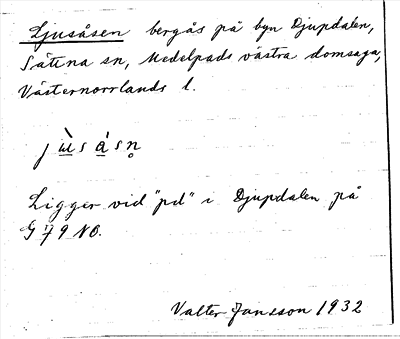 Ljusåsen bergås på byn Djupdalen,
Sättna sn, Medelpads västra domsaga,
Västernorrlands l.
j ɯ̀ s á s n̥
Ligger vid "pd" i Djupdalen på
G 79 NO.
Valter Jansson 1932